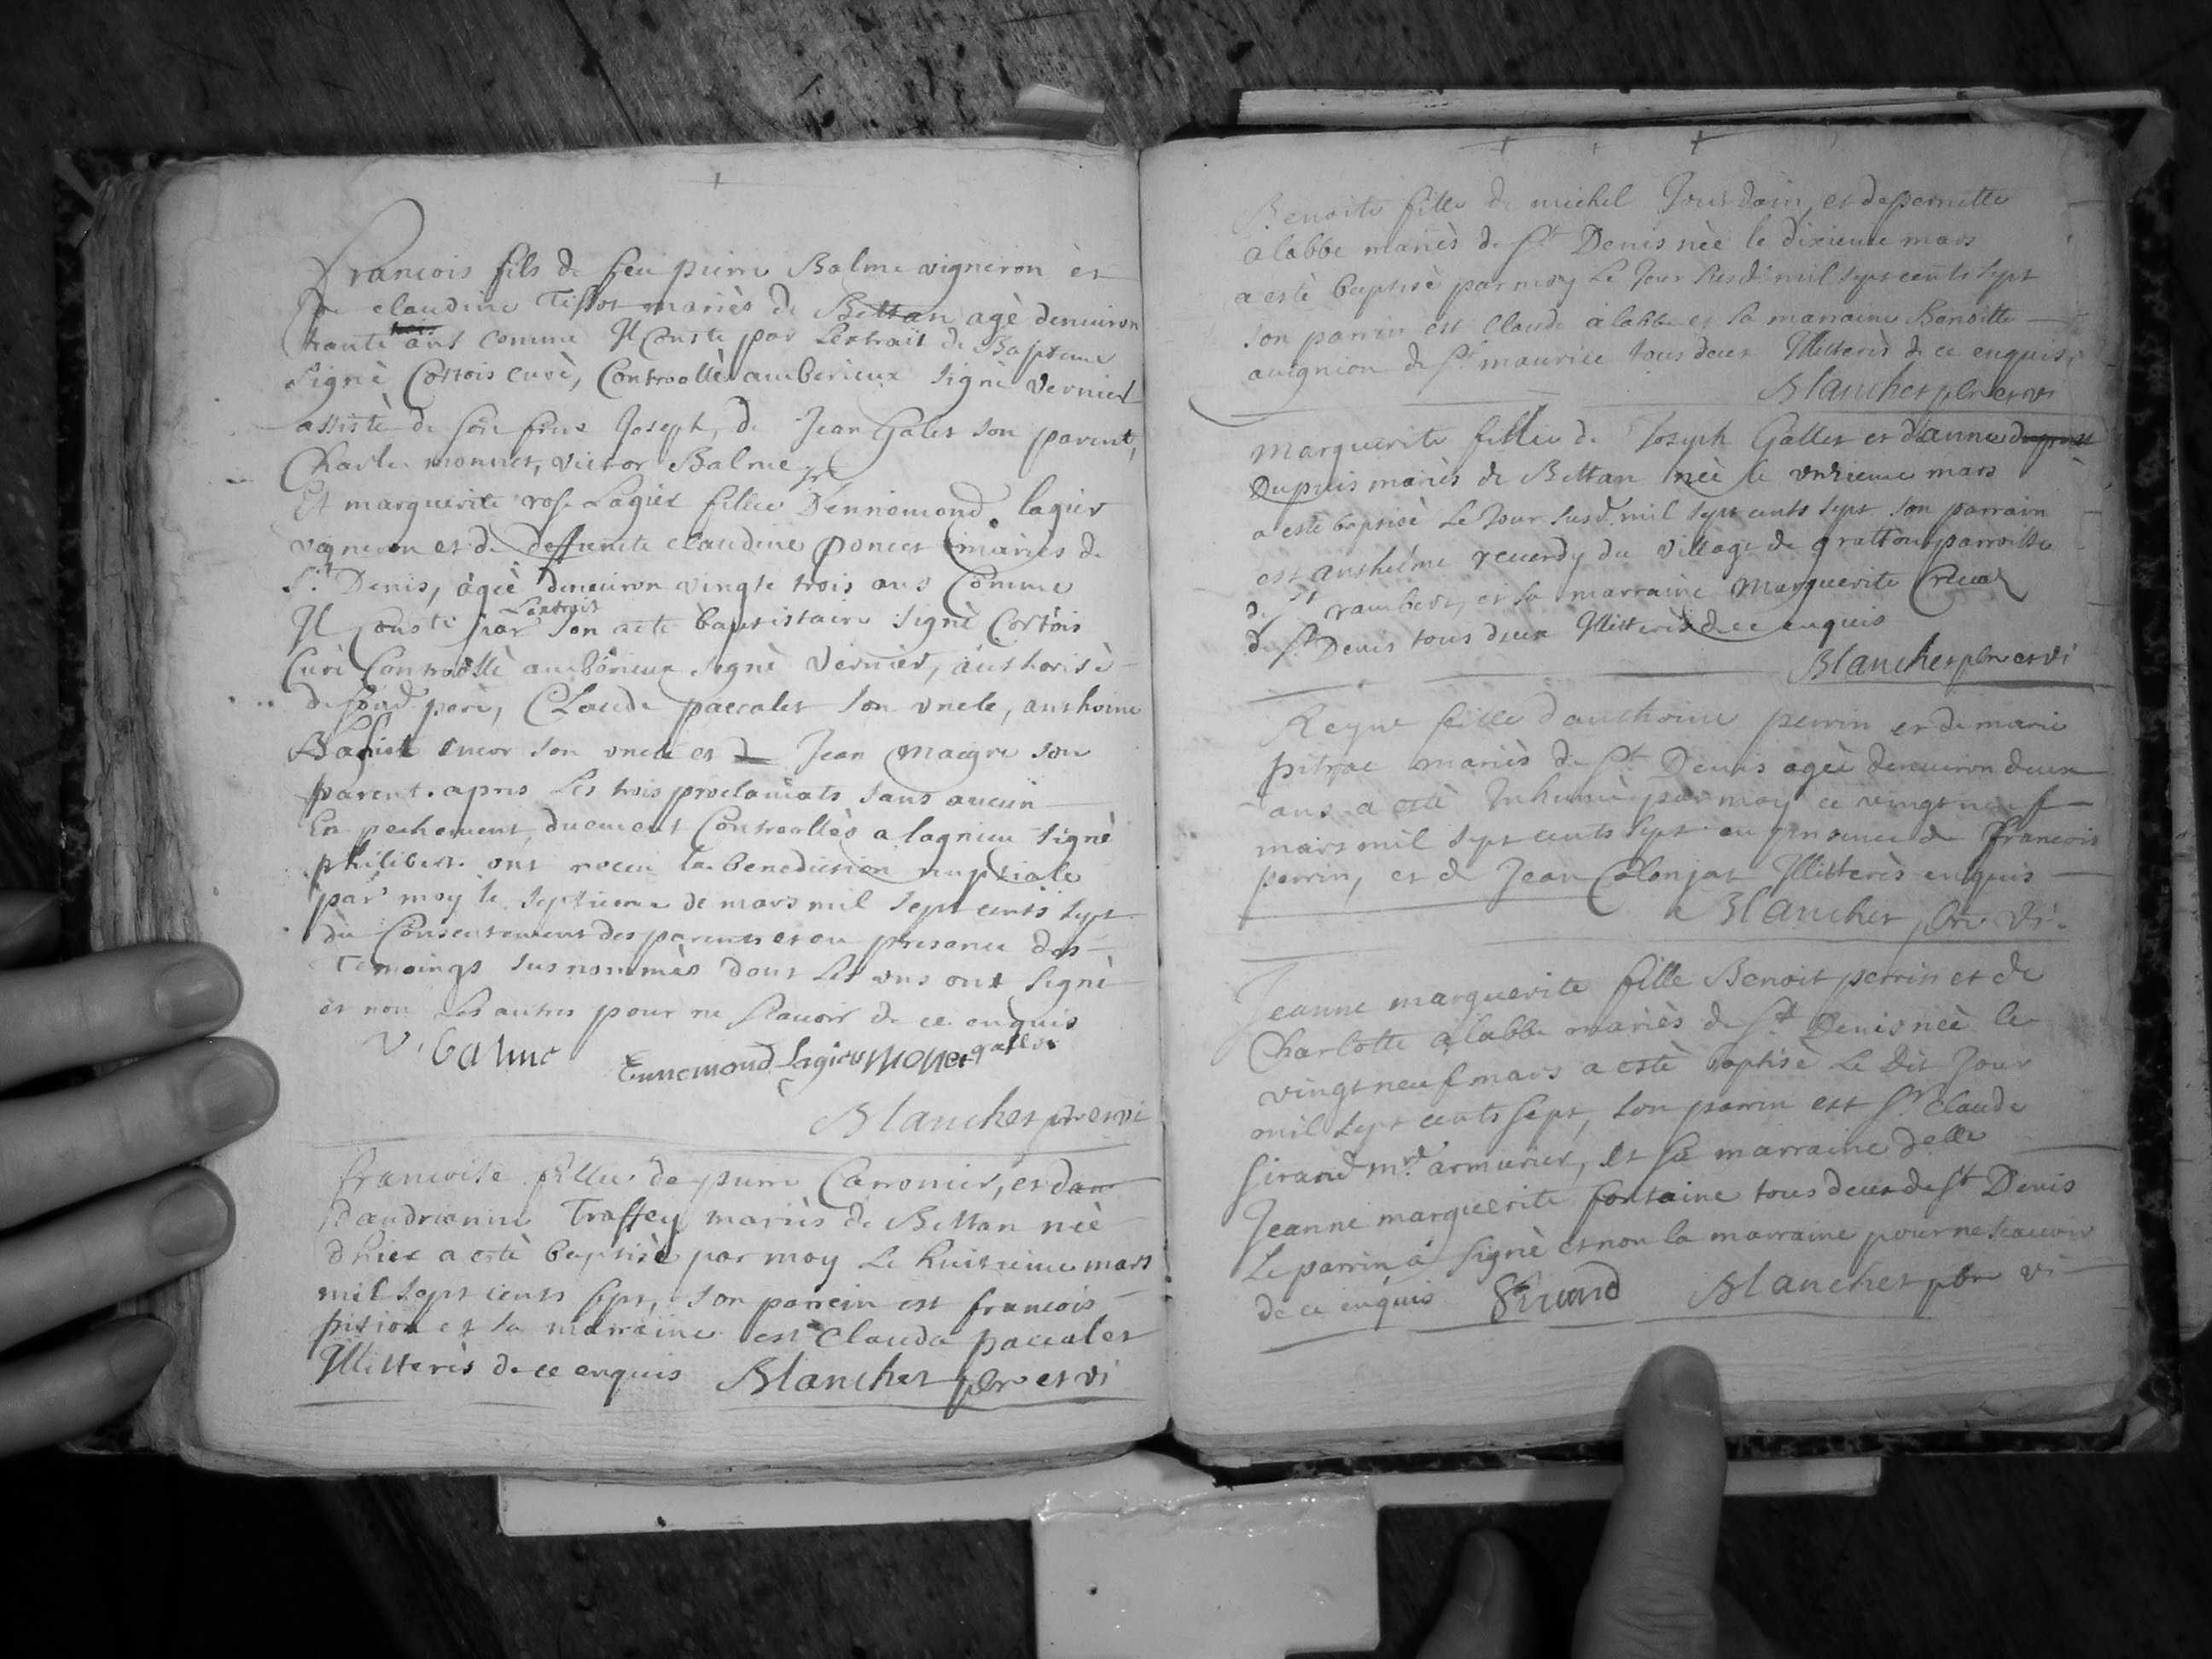 Francois fils de feu pierre Balme vigneron et
de claudine Tissot mariès de Bettan agè denuiron
trante ans comme Il Conste par Lextrait de Bapteme
signè Cortois curè, Controollè amberieux signè vernier
assistè de son frere Joseph, de Jean Galet son parent,
Charle monnet, victor Balme
Et marguerite rose Lagier fillie D'ennemond lagier
vigneron et de deffuncte claudine poncet mariès de
St Denis, àgeè denuiron vingte trois ans Comme
Il Conste par Lextrait
son acte baptistaire signè Cortois
Curè Controollè amberieux signè vernier, authorisè
de sond pere, CLaude paccalet son vncle, anthoine
encor son vncle et Jean maigre son
parent. apres Les trois proclamats sans aucun
Enpechement, duement Controollès a lagnieu signè
philibert. ont receu la benediction nuptiale
par moy le septieme de mars mil sept cents sept
du Consentement des parents et en presence des
temoings susnommès dont Les vns ont signè
et non Les autres pour ne scauoir de ce enquis
V. balme Ennemond Lagier Monet galet
Blanchet pbre et vi
francoise fillie de pierre Carronier, et dan
dandreanne Traffey mariès de Bettan neè
dhier a estè baptisèe par moy Le huitieme mars
mil sept cents sept, son parrein est francois
pition et sa marraine est Clauda paccalet
Illitterès de ce enquis Blanchet pbre et vi
Benoite fille de michel Jourdain, et de pernette
alabbe mariès de St Denis nèe le dixieme mars
a estè baptisè par moy Le Jour susd. mil sept cents sept
son parrin est Claude alabbe et sa marraine Benoitte
auignion de St maurice tous deux Illitterès de ce enquis
Blanchet pbre et vi
marguerite fillie de Joseph Gallet et danne
Dupuis mariès de Bettan neè le vnzieme mars
a estè baptisè Le Jour susd. mil sept cents sept son parrain
est anthelme reuerdy du village de grattoux parroisse
de St rambert, et sa marraine Marguerite
de St Denis tous deux Illitterès de ce enquis
Blanchet pbre et vi
Reyne fille d'anthoine perrin et de marie
pitrac mariès de St Denis ageè denuiron deux
ans a estè Inhumè par moy ce vingt neuf
mars mil sept cents sept en presence de francois
perrin, et de Jean Colonjat Illitterès enquis
Blanchet pbre vi.
Jeanne marguerite fille Benoit perrin et de
Charlotte alabbe mariès de St Denis neè le
vingt neuf mars a estè baptisè Le Dit Jour
mil sept cents sept, son parrin est Sr Claude
Girand md armurier, et sa marraine delle
Jeanne marguerite fontaine tous deux de St Denis
Le parrin à signè et non la marraine pour ne scauoir
de ce enquis Girand Blanchet pbre vi